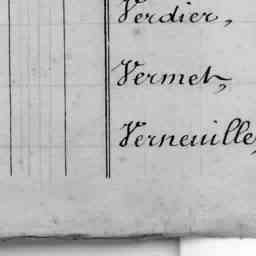 Verdier,
Vermet,
Verneuille,